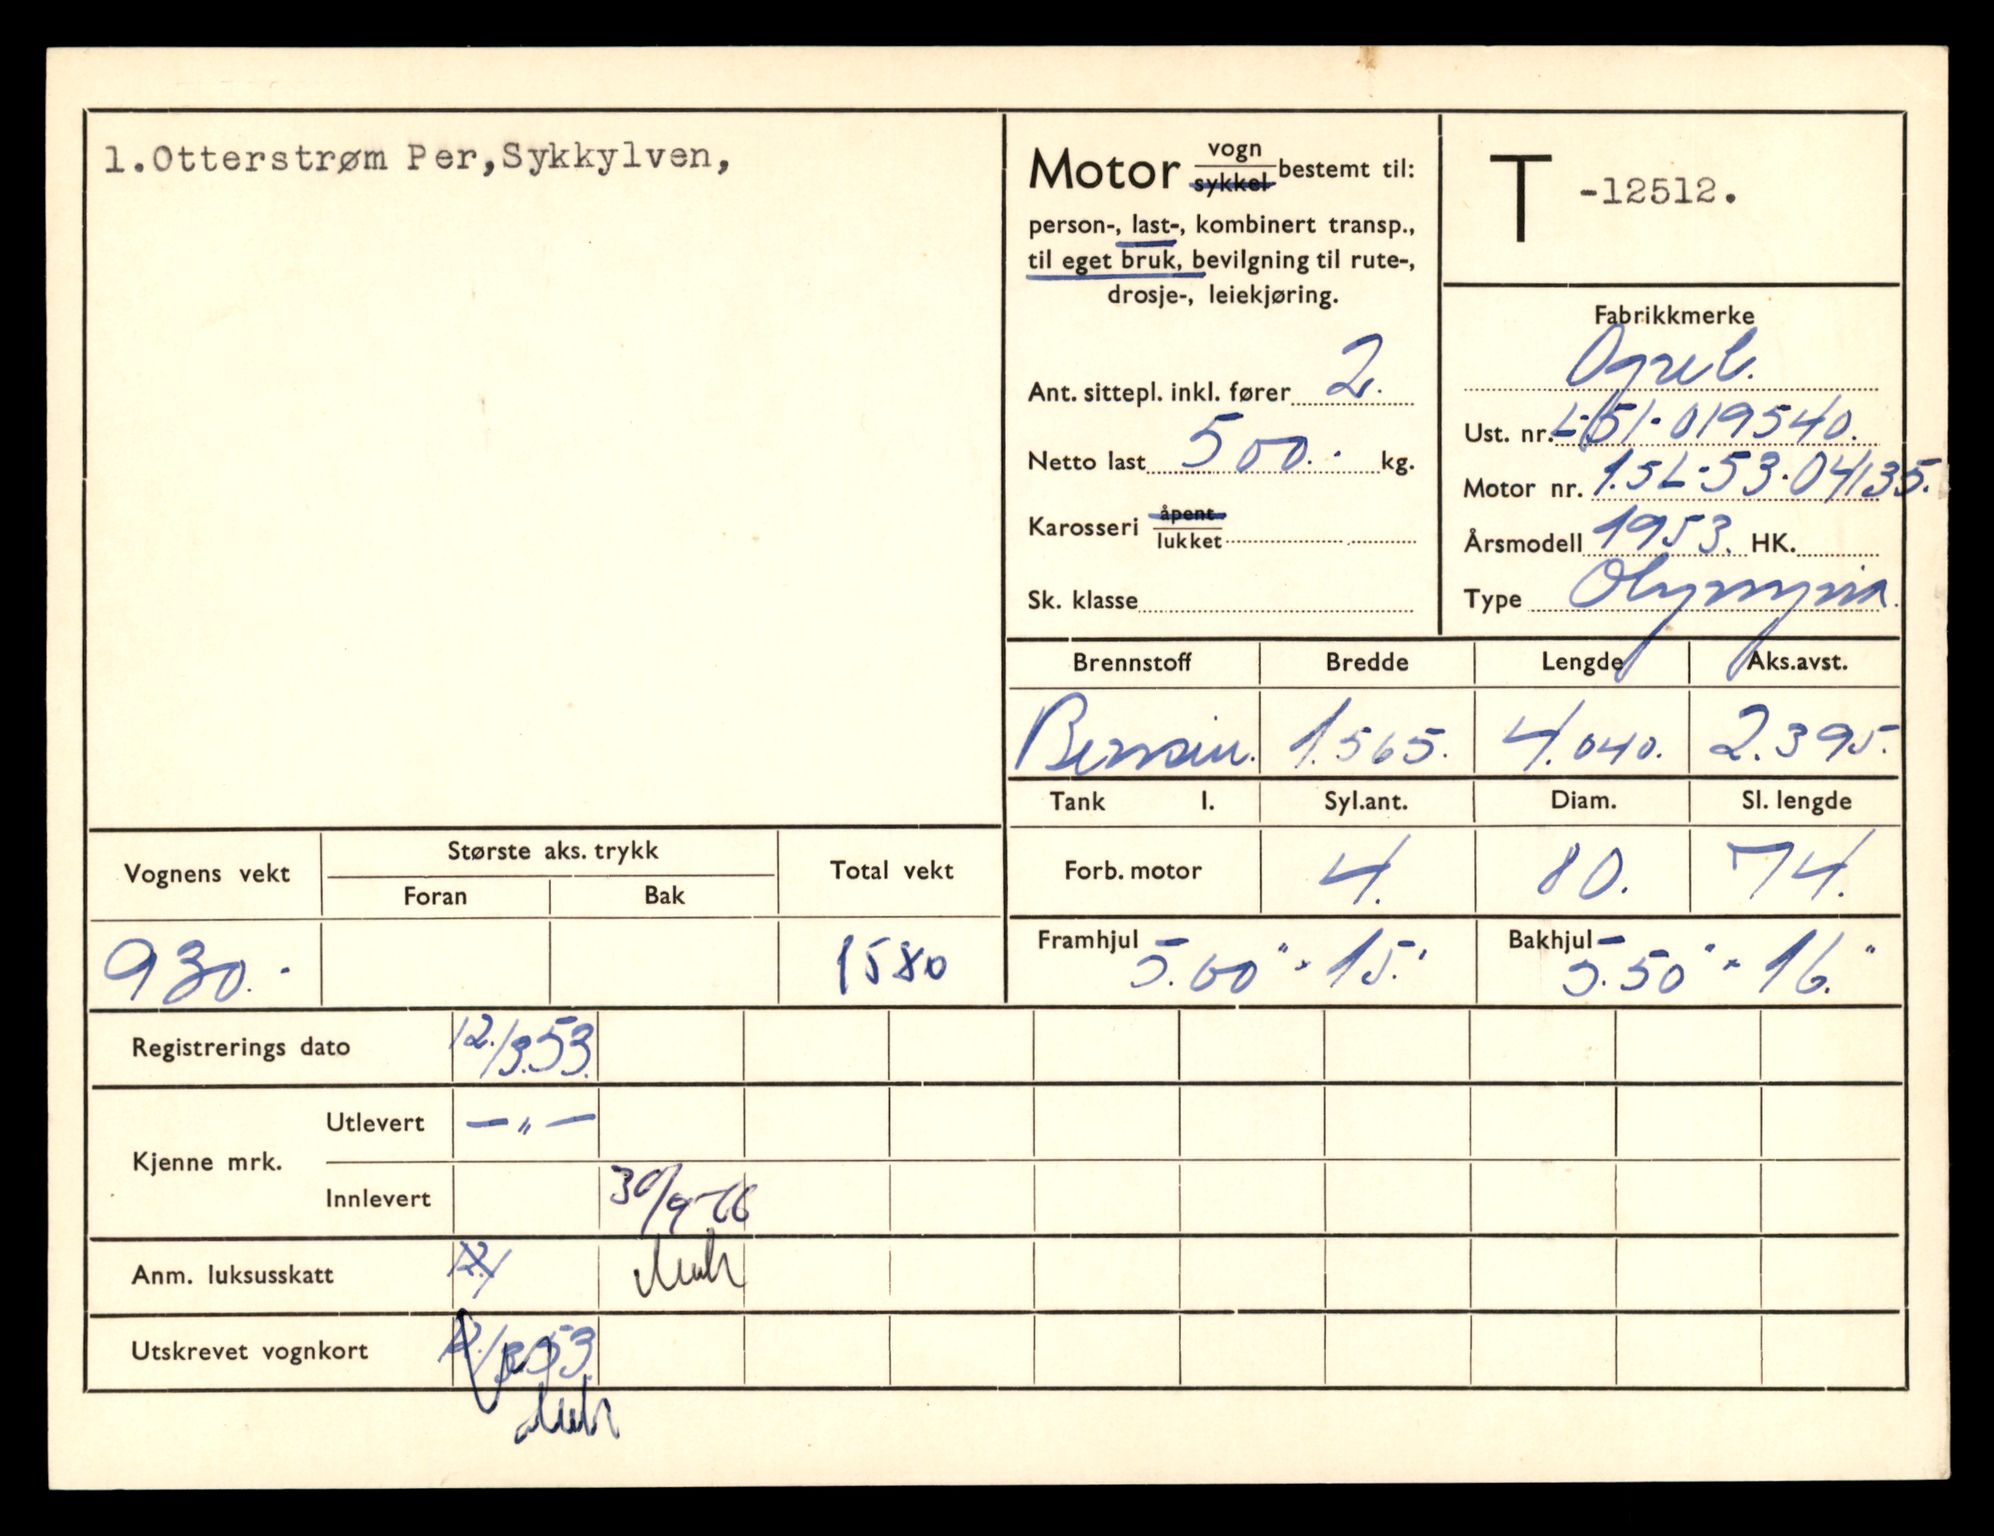 1.Otterstrøm Per,Sykkylven,
Motor vogn sykkel bestemt til:
person-, last-, kombinert transp.,
til eget bruk, bevilgning til rute-,
drosje-, leiekjøring.
Ant. sittepl. inkl. fører 2.
Netto last 500.- kg.
Karosseri åpent lukket
Sk. klasse
T -12512.
Fabrikkmerke
Opel.
Ust. nr. L-51-019540.
Motor nr. 1.5L-53-04135.
Årsmodell 1953. HK.
Type Olympia.
Brennstoff Bredde Lengde Aks.avst.
Bensin. 1.565. 4.040. 2.395.
Tank l. Syl.ant. Diam. Sl. lengde
Forb. motor 4. 80. 74.
Framhjul 5.00" x 15." Bakhjul 5.50" x 16."
Vognens vekt Største aks. trykk Total vekt
Foran Bak
930.- 1580
Registrerings dato 12./3.53.
Kjenne mrk. Utlevert —„—
Innlevert 30/9-66
Anm. luksusskatt 12./
Utskrevet vognkort 12./3.53.